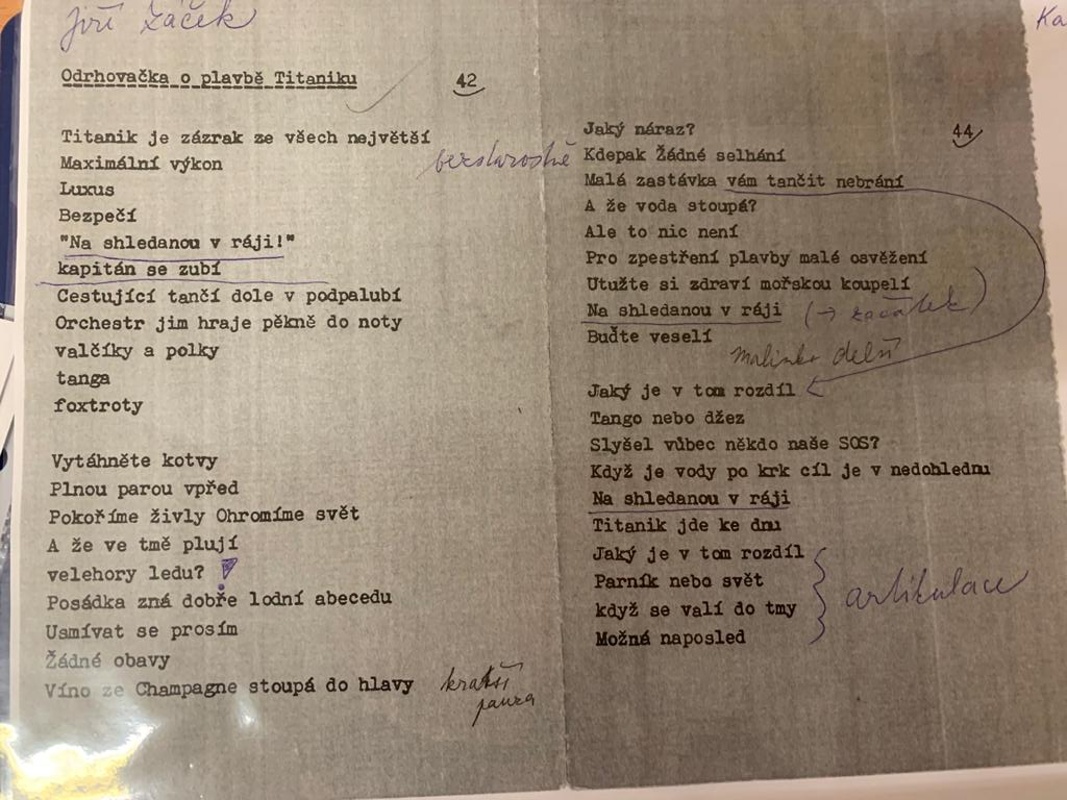 Jiří Žáček
Odrhovačka o plavbě Titaniku
42
Titanik je zázrak ze všech největší
Maximální výkon
bezstarostně
Luxus
Bezpečí
"Na shledanou v ráji!"
kapitán se zubí
Cestující tančí dole v podpalubí
Orchestr jim hraje pěkně do noty
valčíky a polky
tanga
foxtroty
Vytáhněte kotvy
Plnou parou vpřed
Pokoříme živly Ohromíme svět
A že ve tmě plují
velehory ledu?
Posádka zná dobře lodní abecedu
Usmívat se prosím
Žádné obavy
Víno ze Champagne stoupá do hlavy
kratší
pauza
Ka
Jaký náraz?
44
Kdepak Žádné selhání
Malá zastávka vám tančit nebrání
A že voda stoupá?
Ale to nic není
Pro zpestření plavby malé osvěžení
Utužte si zdraví mořskou koupelí
Na shledanou v ráji (→ začátek)
Buďte veselí
malinko delší
Jaký je v tom rozdíl
Tango nebo džez
Slyšel vůbec někdo naše SOS?
Když je vody po krk cíl je v nedohlednu
Na shledanou v ráji
Titanik jde ke dnu
Jaký je v tom rozdíl
Parník nebo svět
když se valí do tmy
Možná naposled
artikulace